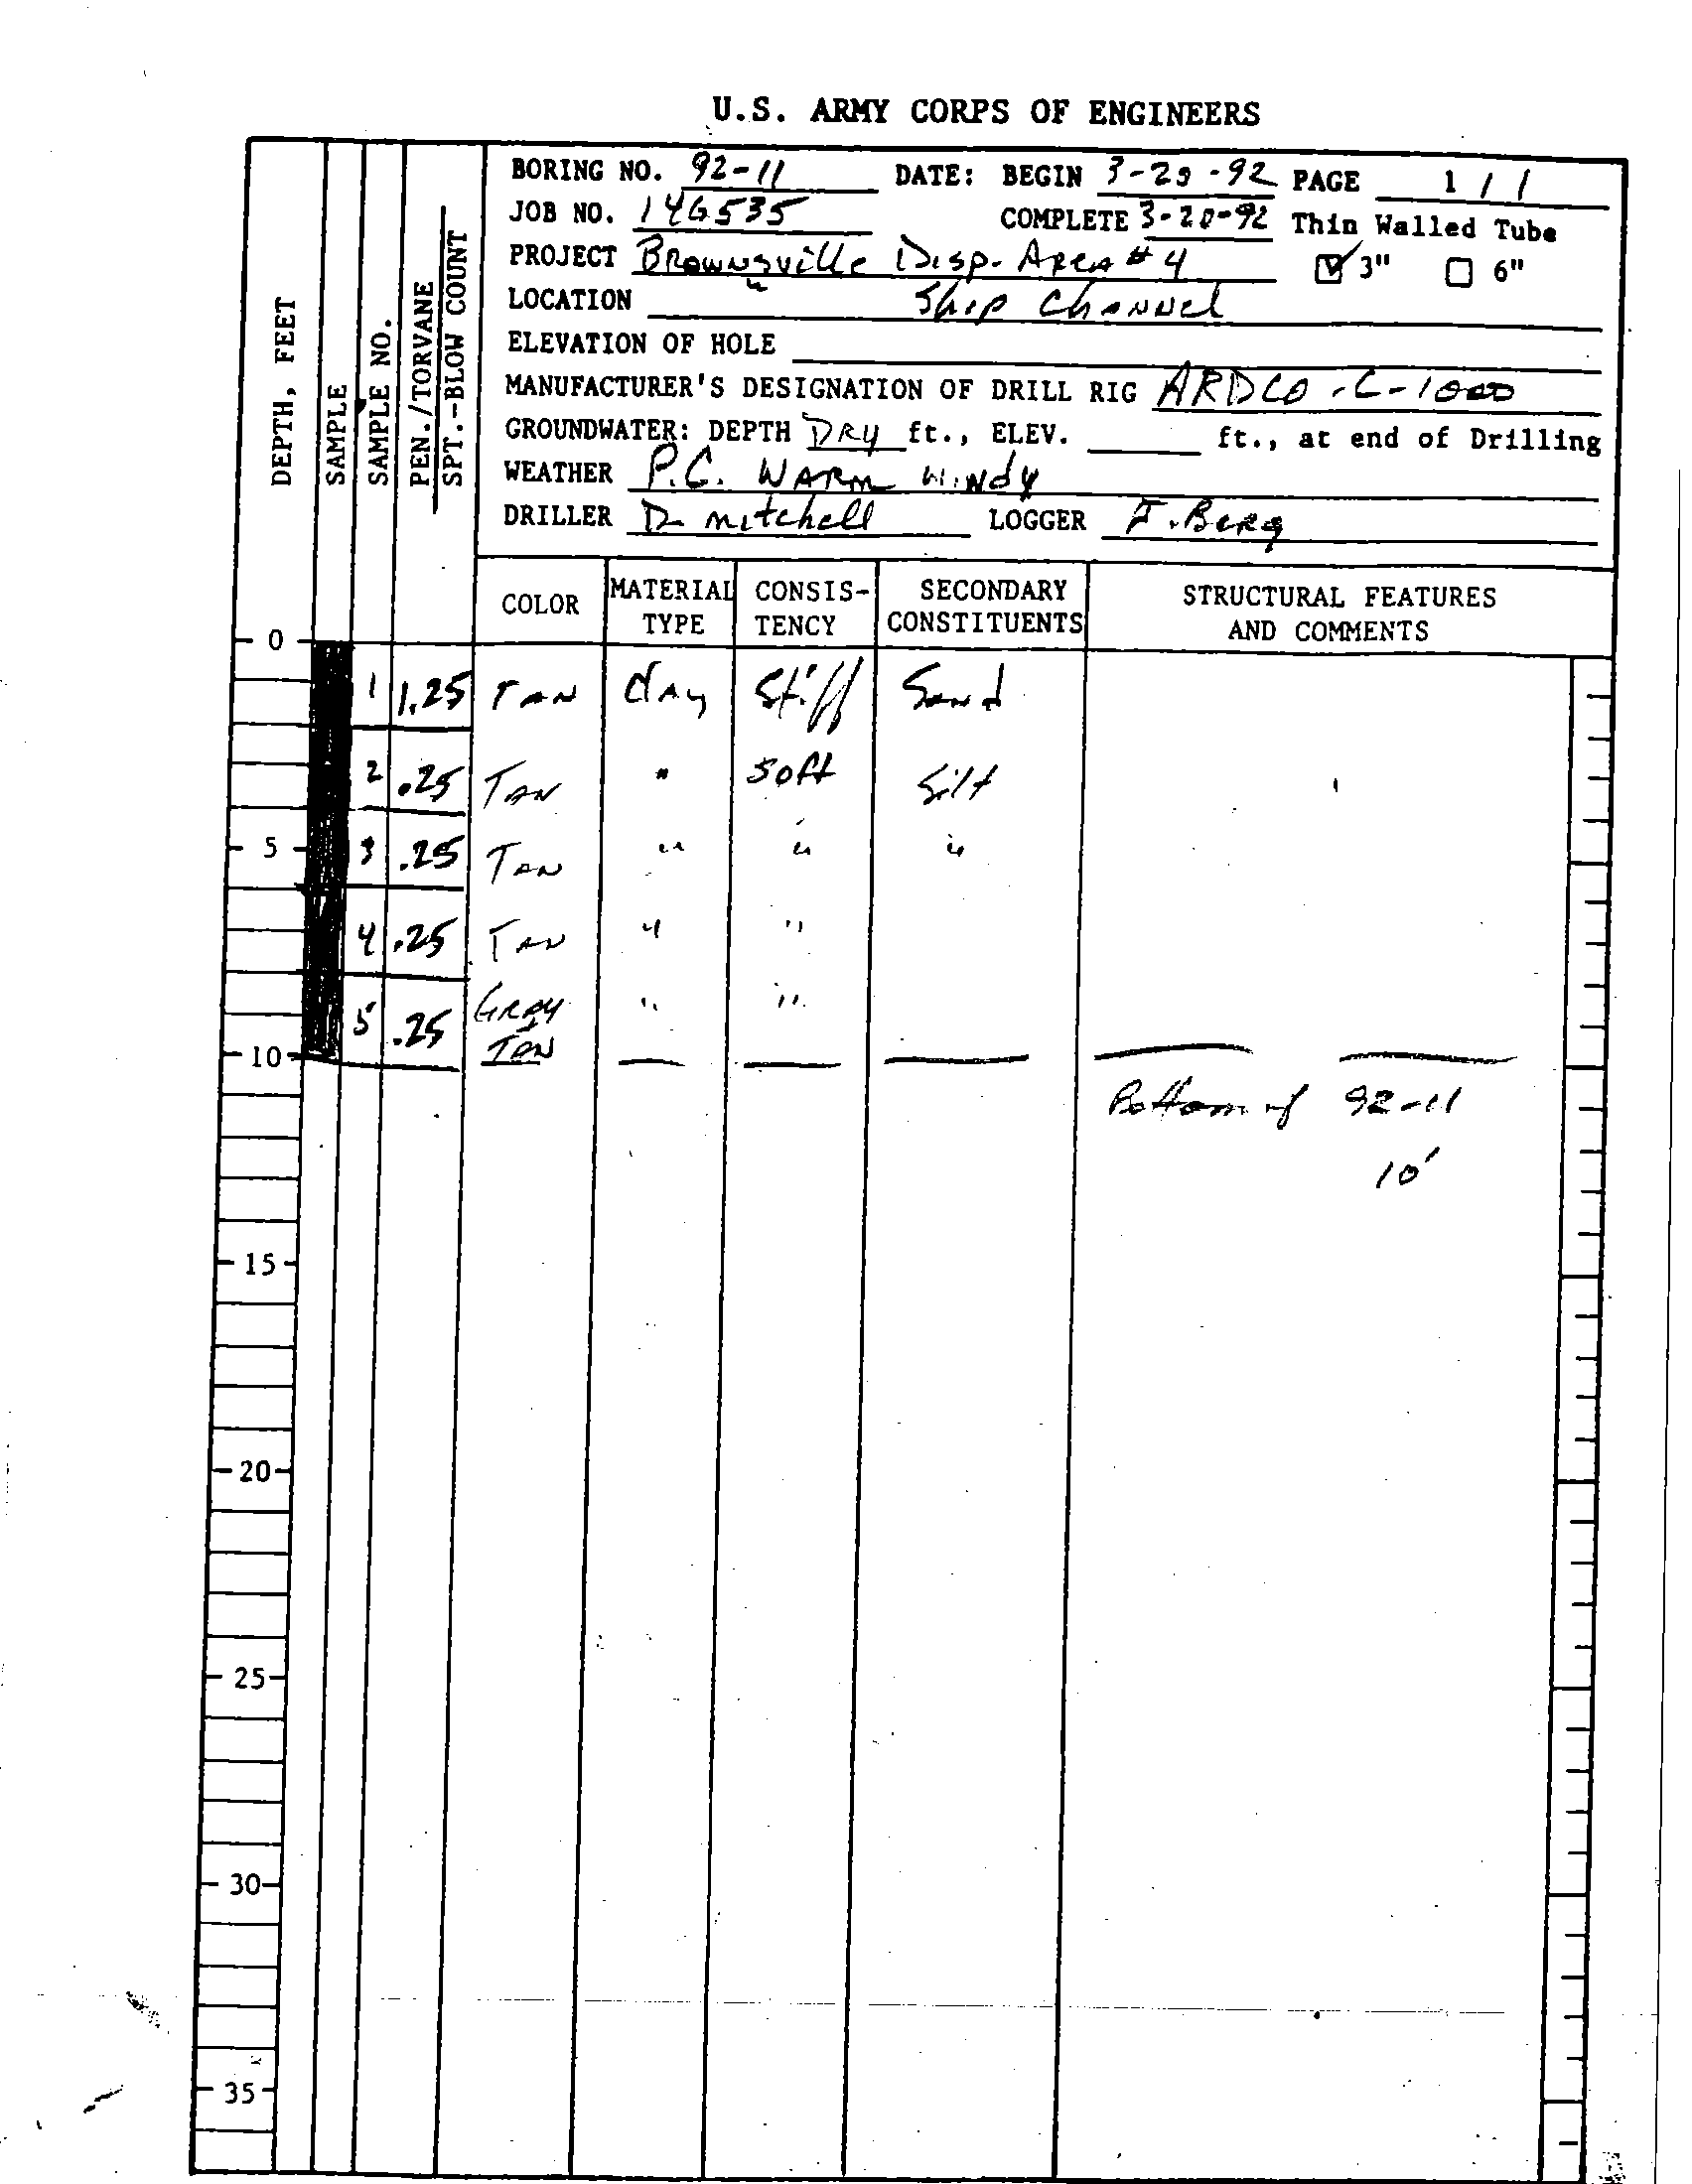 U.S. ARMY CORPS OF ENGINEERS
BORING NO. 92-11 DATE: BEGIN 3-20-92 PAGE 1 / 1
JOB NO. 146535 COMPLETE 3-20-92 Thin Walled Tube
PROJECT Brownsville Disp. Area # 4 ☑ 3" ☐ 6"
LOCATION " Ship Channel
ELEVATION OF HOLE
MANUFACTURER'S DESIGNATION OF DRILL RIG ARDCO-C-1000
GROUNDWATER: DEPTH DRY ft., ELEV. ft., at end of Drilling
WEATHER P.C. WARM Windy
DRILLER D. Mitchell LOGGER Berg
DEPTH, FEET
SAMPLE
SAMPLE NO.
PEN./TORVANE
SPT.-BLOW COUNT
COLOR MATERIAL TYPE CONSIS-TENCY SECONDARY CONSTITUENTS STRUCTURAL FEATURES AND COMMENTS
0
1 1.25 TAN Clay Stiff Sand
2 .25 TAN " Soft Silt
5
3 .25 TAN " " "
4 .25 TAN " "
5 .25 GRAY " "
TAN
10
Bottom of 92-11
10'
15
20
25
30
35